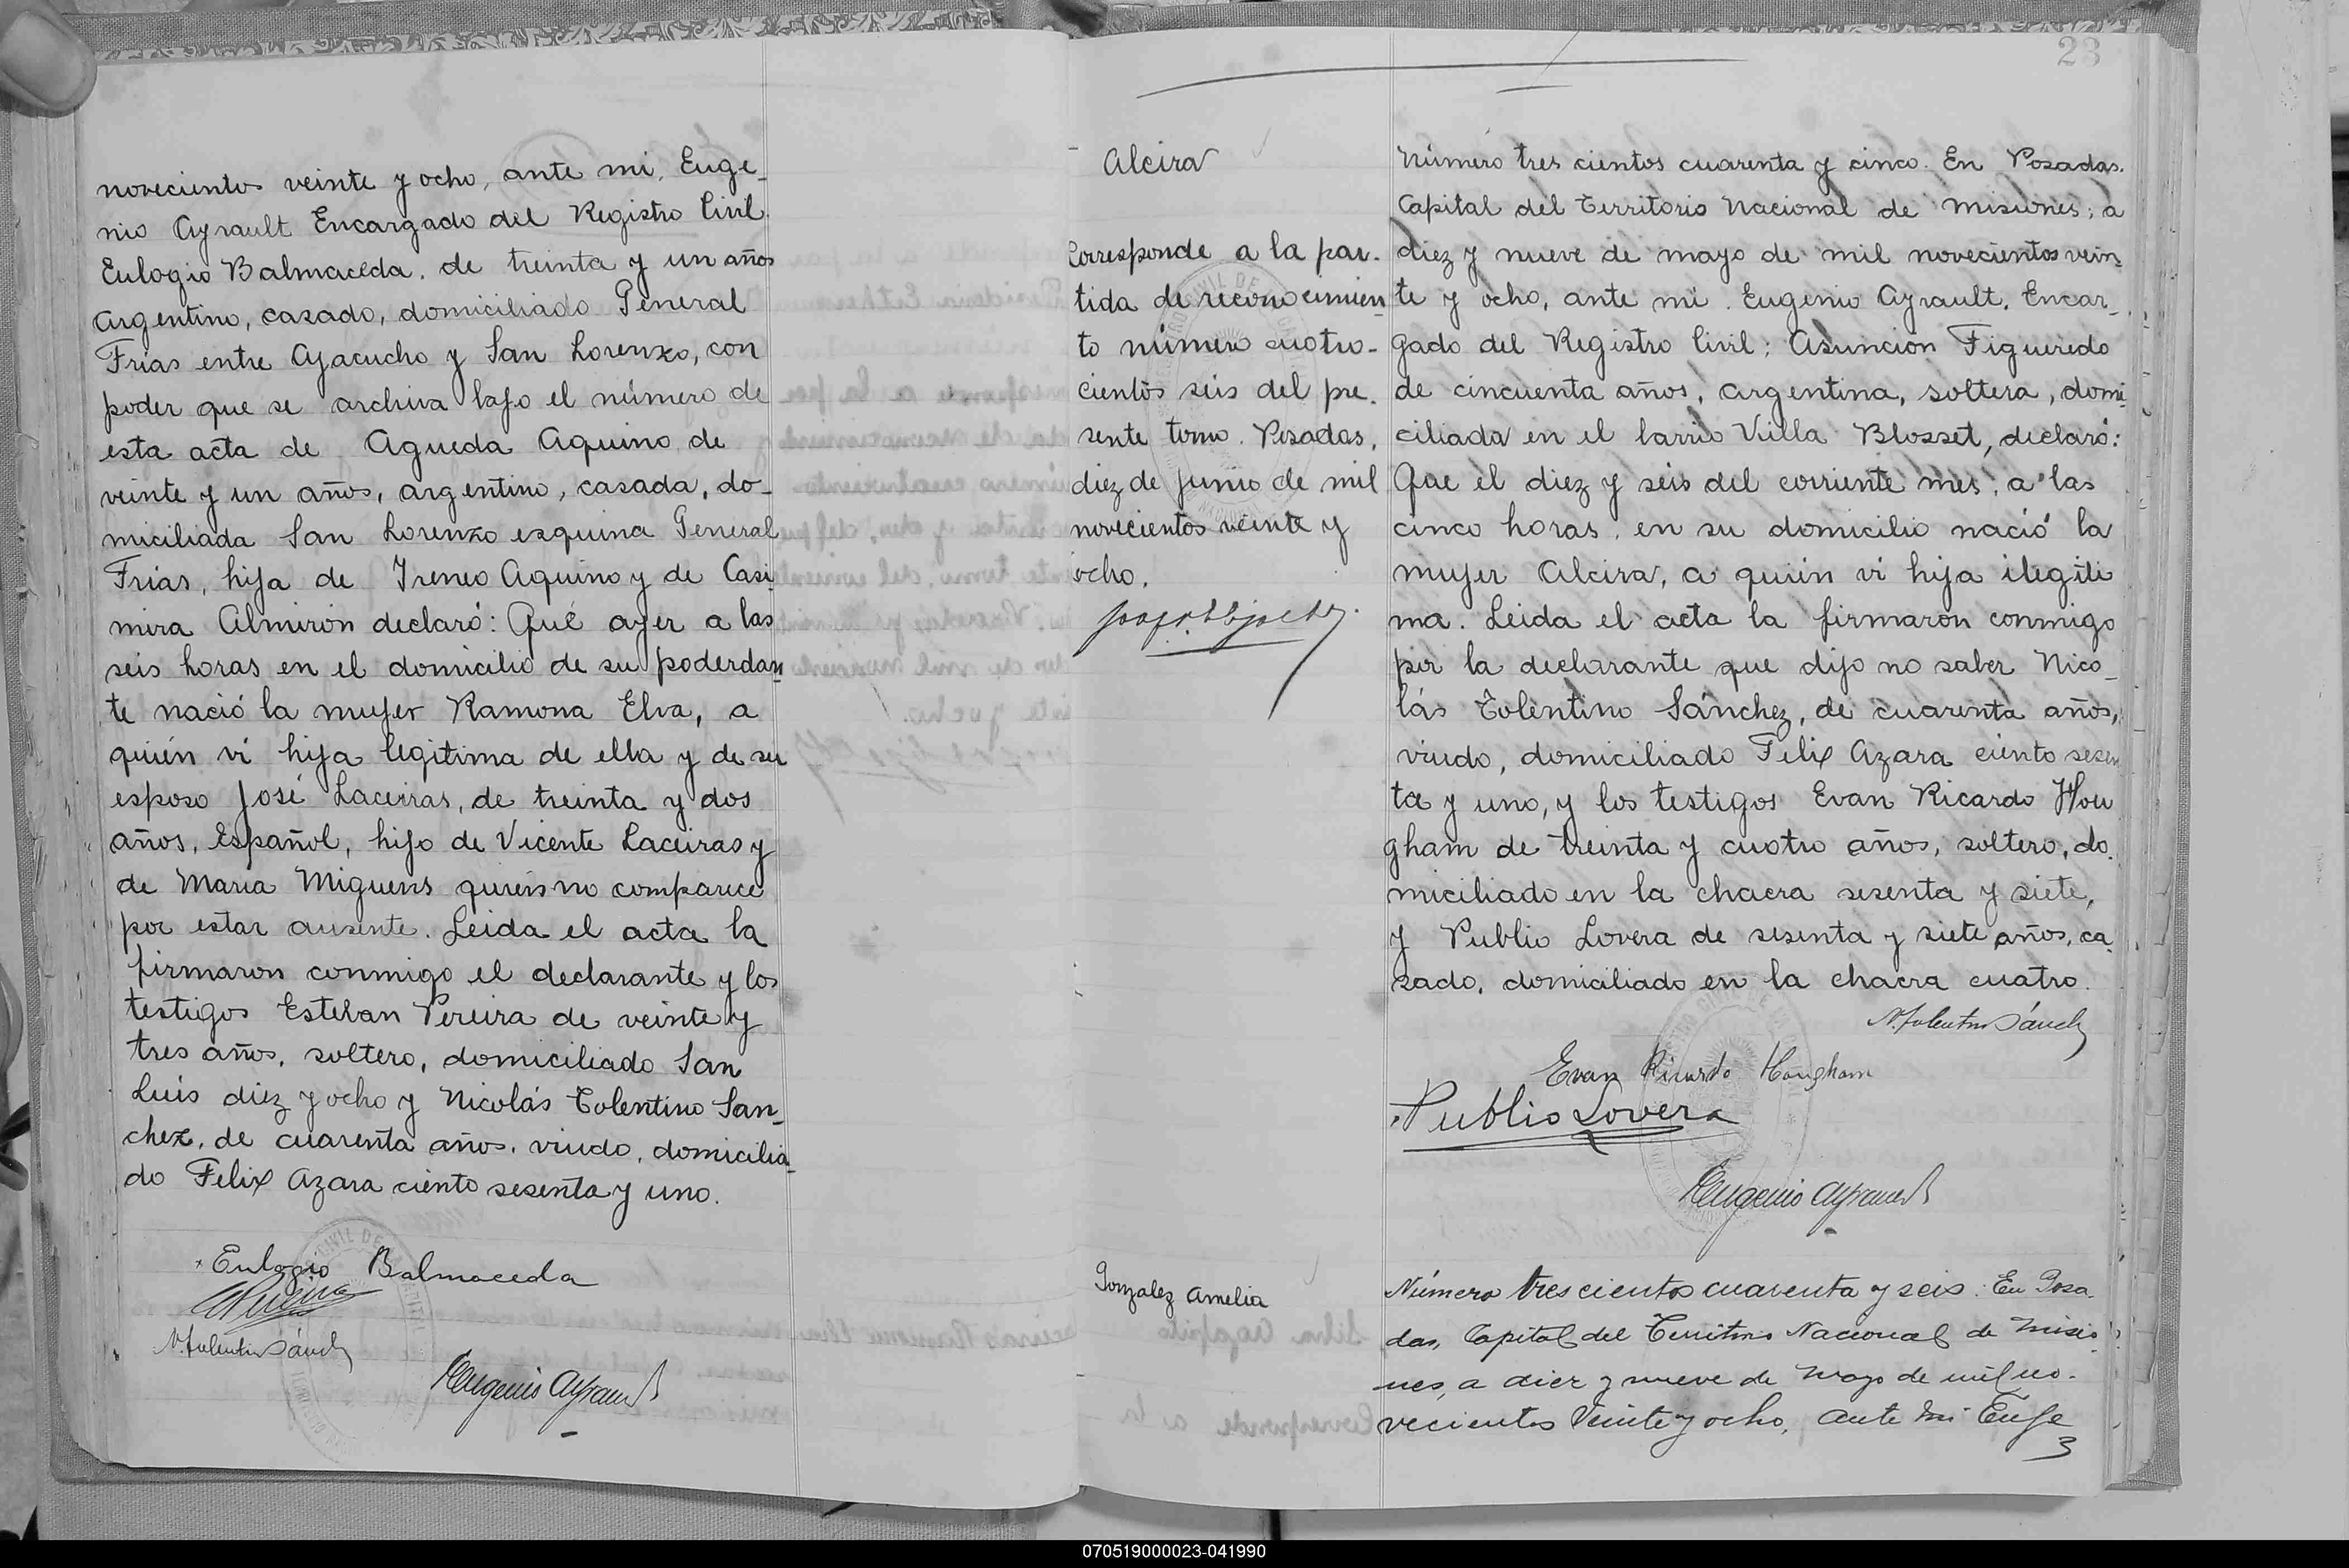 novecientos veinte y ocho, ante mi, Euge_
nio Ayrault Encargado del Registro Civil.
Eulogio Balmaceda. de treinta y un años
Argentino, casado, domiciliado General
Frias entre Ayacucho y San Lorenzo, con
poder que se archiva bajo el número de
esta acta de Agueda Aquino de
veinte y un años, argentino, casada, do_
miciliada San Lorenzo esquina General
Frias, hija de Ireneo Aquino y de Casi
mira Almirón declaró: Qué ayer a las
seis horas en el domicilio de su poderdan
te nació la mujer Ramona Elva, a
quién vi hija legitima de ella y de su
esposo José Laceiras, de treinta y dos
años, Español, hijo de Vicente Laceiras y
de Maria Miguens quién no comparece
por estar ausente. Leida el acta la
firmaron conmigo el declarante y los
testigos Esteban Pereira de veinte y
tres años, soltero, domiciliado San
Luis diez y ocho y Nicolás Tolentino San_
chez, de cuarenta años. viudo, domicilia_
do Felix Azara ciento sesenta y uno.
Eulogio Balmaceda
N. Tolentino Sánch
Eugenio Ayrault
23
Alcira
Corresponde a la par-
tida de reconocimien
to número cuatro-
cientos seis del pre-
sente tomo. Posadas,
diez de Junio de mil
novecientos veinte y
ocho.
Número tres cientos cuarenta y cinco. En Posadas.
Capital del Territorio Nacional de Misiones; a
diez y nueve de mayo de mil novecientos vein_
te y ocho, ante mi. Eugenio Ayrault. Encar_
gado del Registro Civil; Asunción Figueredo
de cincuenta años, argentina, soltera, domi
ciliada en el barrio Villa Blosset, declaró:
Que el diez y seis del corriente mes, a las
cinco horas, en su domicilio nació la
mujer Alcira, a quién vi hija ilegiti
ma. Leida el acta la firmaron conmigo
por la declarante que dijo no saber Nico_
lás Tolentino Sánchez, de cuarenta años,
viudo, domiciliado Felix Azara ciento sesen
ta y uno, y los testigos Evan Ricardo Hou
gham de treinta y cuatro años, soltero, do.
miciliado en la chacra sesenta y siete,
y Publio Lovera de sesenta y siete años, ca.
sado, domiciliado en la chacra cuatro.
N. Tolentino Sánch
Evan Ricardo Hougham
Publio Lovera
Eugenio Ayrault
Gonzalez Amelia
Número tres cientos cuarenta y seis. En Posa.
das, Capital del Territorio Nacional de Misio
nes, a diez y nueve de Mayo de mil no-
vecientos veinte y ocho, ante mi Euge
070519000023-041990